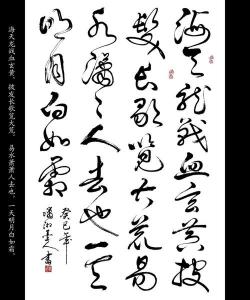 海天龍戰血玄黄披
髮长歌覽大荒易
水瀟々人去也一天
明月白如霜
癸巳年
海天龙战血玄黄，披发长歌览大荒。易水萧萧人去也，一天明月白如霜。